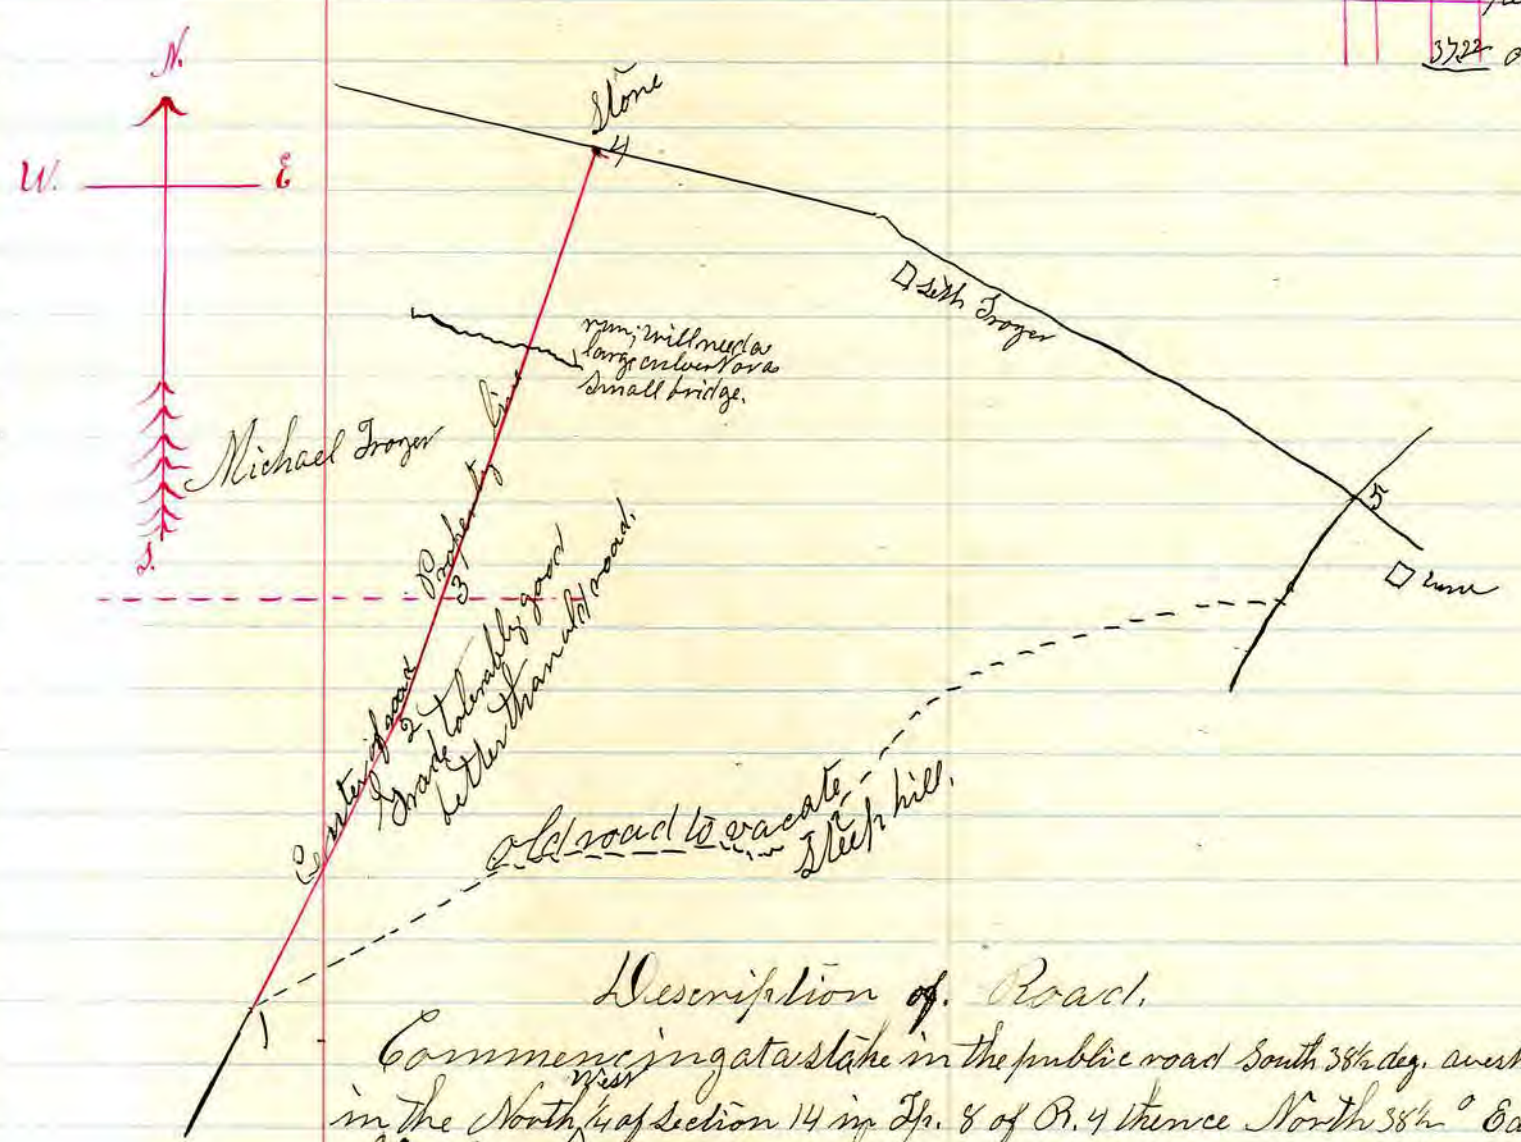 37.22
N.
W. E
S.
Stone
4
Seth Troyer
run; will need a
large culvert or a
small bridge.
Michael Troyer
Property line
3
5
Center of road
2
Grade tolerably good
better than old road.
old road to vacate
Steep hill.
1
Description of Road.
Commencing at a stake in the public road South 38½ deg. west
in the North West ¼ of Section 14 in Tp. 8 of R. 4 thence North 38½° Ea